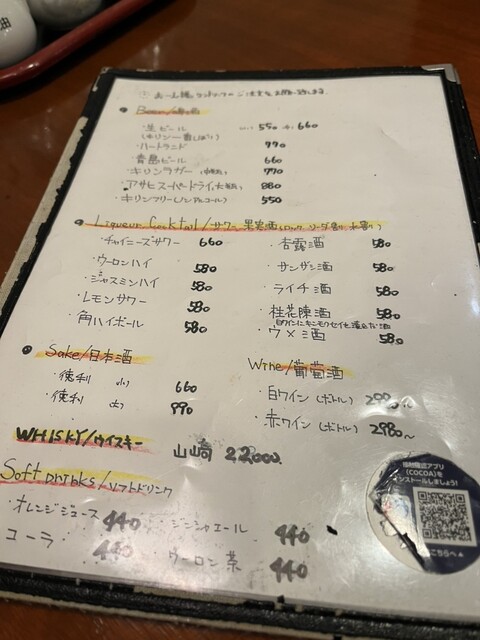 油
お一人様ワンドリンクのご注文をお願い致します
Beer/
・生ビール 小・550 中・660
(キリン一番しぼり)
・ハートランド 770
・青島ビール 660
・キリンラガー 770
・アサヒスーパードライ(大瓶) 880
・キリンフリー(ノンアルコール) 550
Liqueur Cocktail/サワー 果実酒(ロック、ソーダ割り、水割り)
・チャイニーズサワー 660
・ウーロンハイ 580
・ジャスミンハイ 580
・レモンサワー 580
・角ハイボール 580
・杏露酒 580
・サンザシ酒 580
・ライチ酒 580
・桂花陳酒 580
白ワインにキンモクセイを漬込だ酒
・ウメ酒 580
Sake/日本酒
・徳利 小) 660
・徳利 大) 990
Wine/葡萄酒
・白ワイン(ボトル) 2980~
・赤ワイン(ボトル) 2980~
WHISKY/ウイスキー 山崎 22,000
Soft Drinks/ソフトドリンク
・オレンジジュース 440 ジンジャエール 440
コーラ 440 ウーロン茶 440
(COCOA)を
インストールしましょう!
こちらへ▲